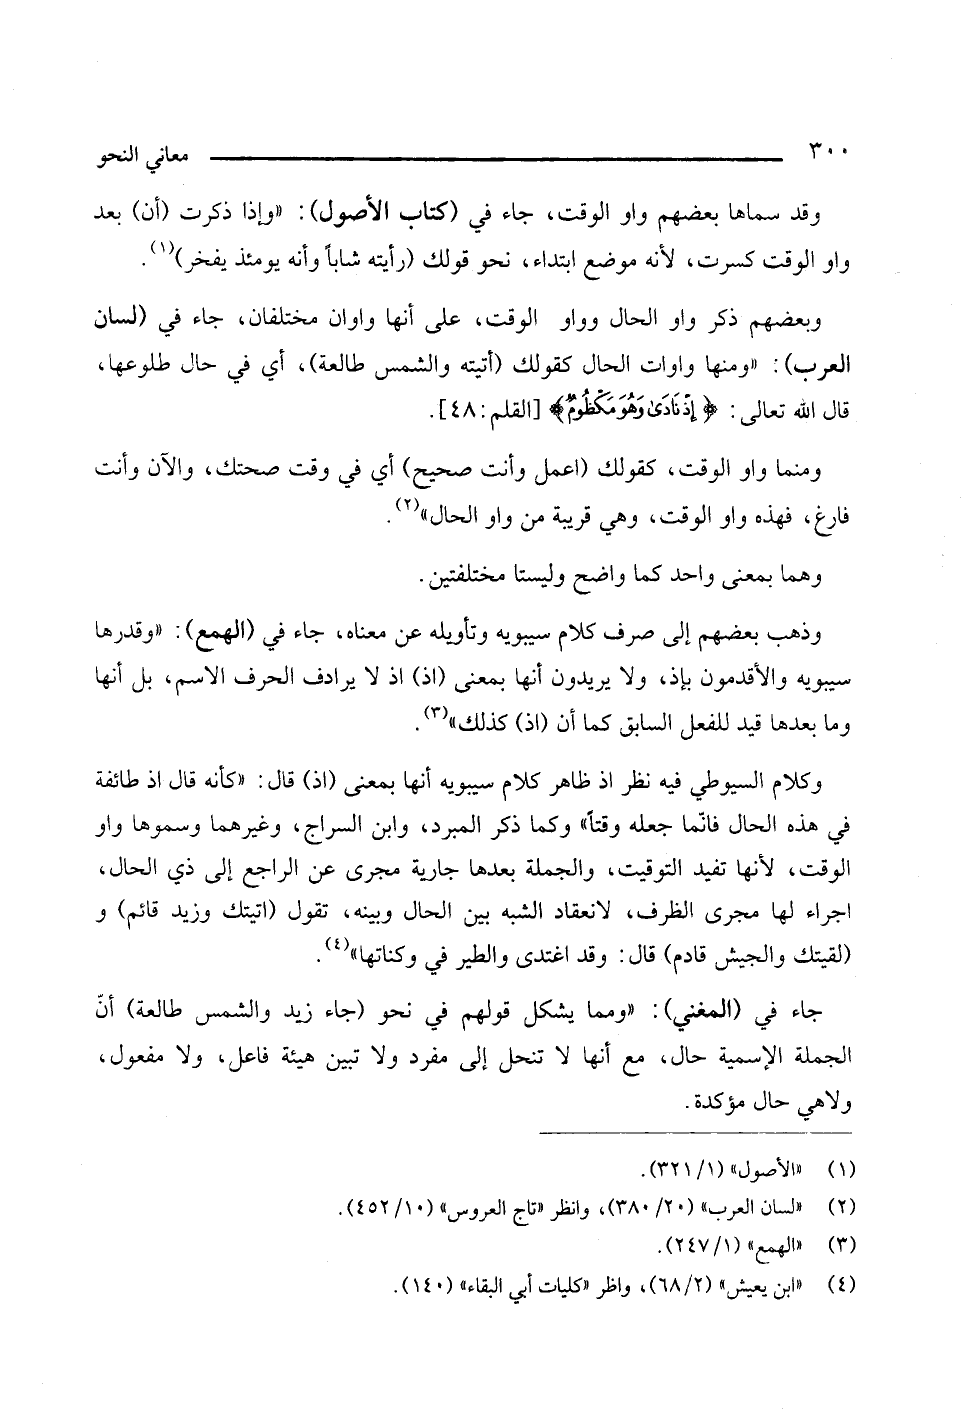 ٣٠٠ معاني النحو
وقد سماها بعضهم واو الوقت، جاء في (كتاب الأصول): «وإذا ذكرت (أن) بعد
واو الوقت كسرت، لأنه موضع ابتداء، نحو قولك (رأيته شاباً وأنه يومئذ يفخر)(١).
وبعضهم ذكر واو الحال وواو الوقت، على أنها واوان مختلفان، جاء في (لسان
العرب): «ومنها واوات الحال كقولك (أتيته والشمس طالعة)، أي في حال طلوعها،
قال الله تعالى: ﴿إِذْ نَادَىٰ وَهُوَ مَكْظُومٌ﴾ [القلم: ٤٨].
ومنما واو الوقت، كقولك (اعمل وأنت صحيح) أي في وقت صحتك، والآن وأنت
فارغ، فهذه واو الوقت، وهي قريبة من واو الحال»(٢).
وهما بمعنى واحد كما واضح وليستا مختلفتين.
وذهب بعضهم إلى صرف كلام سيبويه وتأويله عن معناه، جاء في (الهمع): «وقدرها
سيبويه والأقدمون بإذ، ولا يريدون أنها بمعنى (اذ) اذ لا يرادف الحرف الاسم، بل أنها
وما بعدها قيد للفعل السابق كما أن (اذ) كذلك»(٣).
وكلام السيوطي فيه نظر اذ ظاهر كلام سيبويه أنها بمعنى (اذ) قال: «كأنه قال اذ طائفة
في هذه الحال فانّما جعله وقتاً» وكما ذكر المبرد، وابن السراج، وغيرهما وسموها واو
الوقت، لأنها تفيد التوقيت، والجملة بعدها جارية مجرى عن الراجع إلى ذي الحال،
اجراء لها مجرى الظرف، لانعقاد الشبه بين الحال وبينه، تقول (اتيتك وزيد قائم) و
(لقيتك والجيش قادم) قال: وقد اغتدى والطير في وكناتها»(٤).
جاء في (المغني): «ومما يشكل قولهم في نحو (جاء زيد والشمس طالعة) أنّ
الجملة الإسمية حال، مع أنها لا تنحل إلى مفرد ولا تبين هيئة فاعل، ولا مفعول،
ولاهي حال مؤكدة.
(١) «الأصول» (١/ ٣٢١).
(٢) «لسان العرب» (٢٠/ ٣٨٠)، وانظر «تاج العروس» (١٠/ ٤٥٢).
(٣) «الهمع» (١/ ٢٤٧).
(٤) «ابن يعيش» (٢/ ٦٨)، واظر «كليات أبي البقاء» (١٤٠).